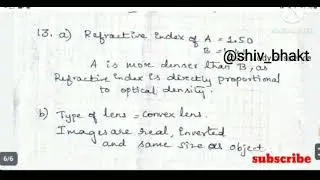 13. a) Refractive index of A = 1.50
B =
@shiv_bhakt
A is more denser than B, as
Refractive index is directly proportional
to optical density.
b) Type of lens = convex lens.
Images are real, inverted
and same size as object
6/6
subscribe